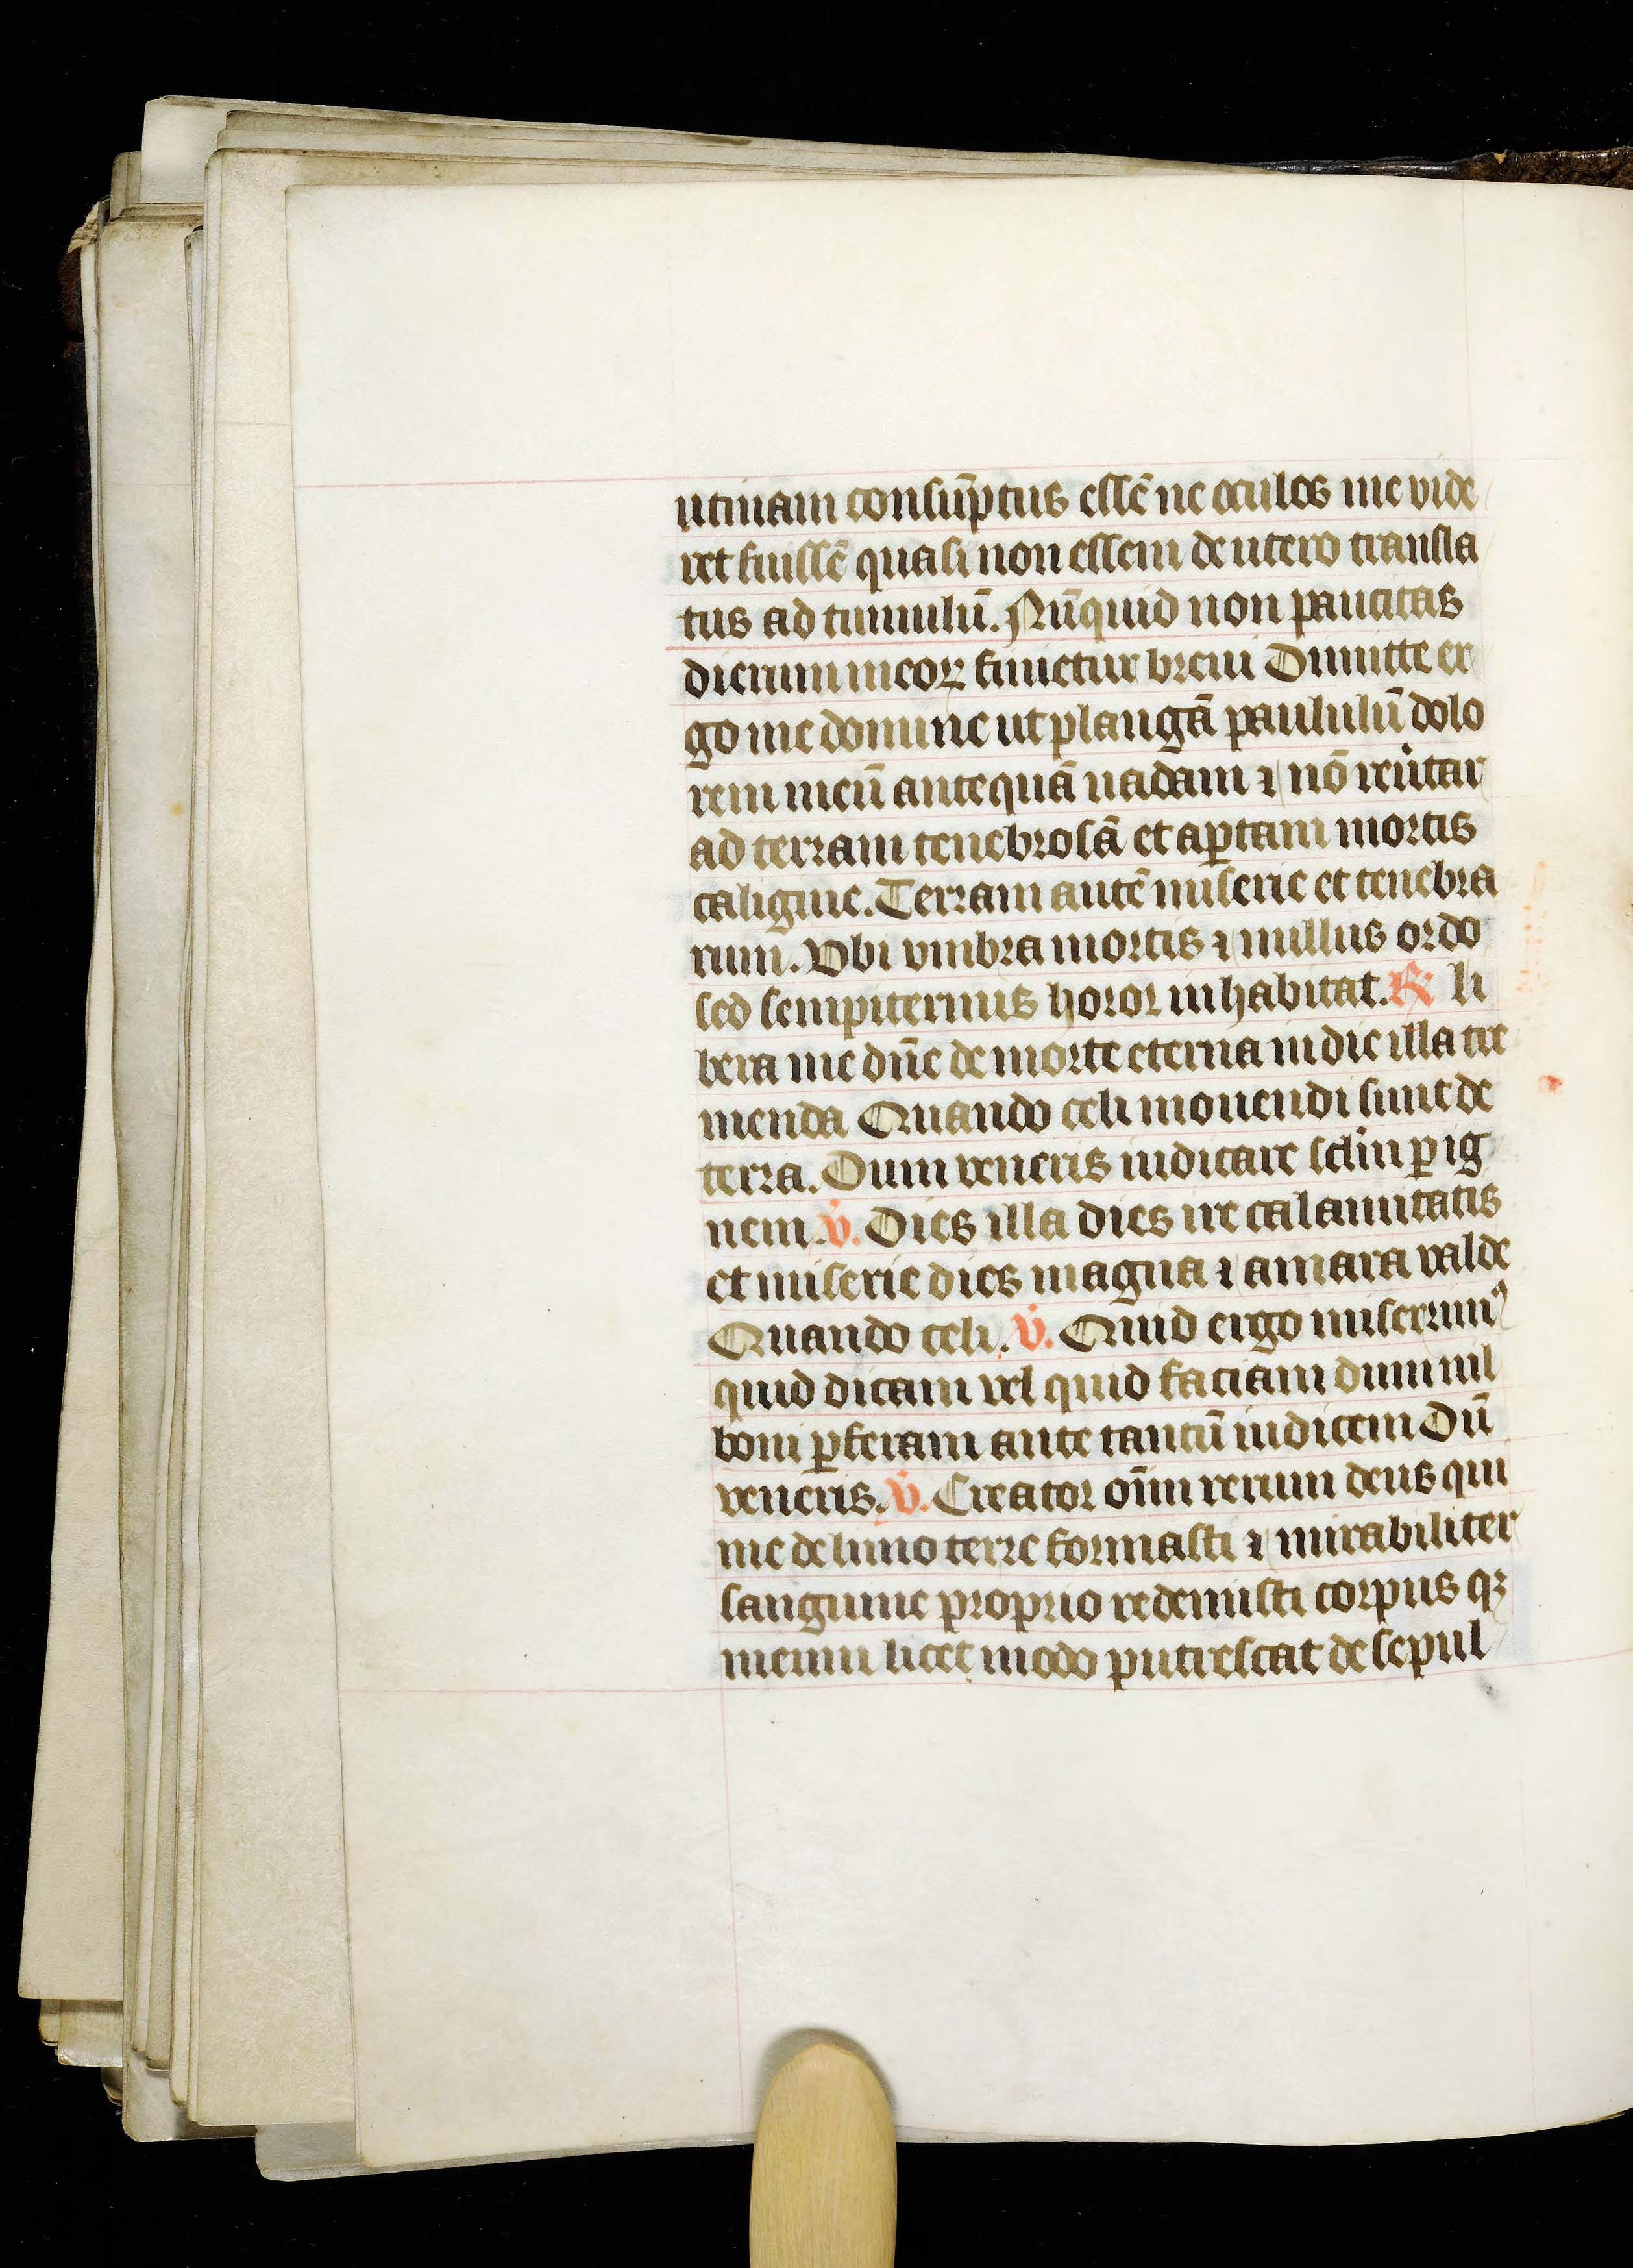 utinam consūptus essē ne oculos me vide
ret fuissē quasi non essem de utero transla
tus ad tumulū. Nūquid non paucitas
dierum meoꝝ finietur breui Dimitte er
go me domine ut plangā paululū dolo
rem meū antequā uadam ⁊ nō reūtar
ad terram tenebrosā et aꝑtam mortis
caligine. Terram autē miserie et tenebra
rum. Vbi vmbra mortis ⁊ nullus ordo
sed sempiternus horor inhabitat. ℟ li
bera me dn̄e de morte eterna in die illa tre
menda Quando celi mouendi sunt de
terra. Dum veneris iudicare sclm̄ ꝑ ig
nem. v̇. Dies illa dies ire calamitatis
et miserie dies magna ⁊ amara valde
Quando celi. v̇. Quid ergo miserrimꝰ
quid dicam vel quid faciam dum nil
boni ꝑferam ante tantū iudicem Dū
veneris. v̇. Creator om̄i rerum deus qui
me de limo terre formasti ⁊ mirabiliter
sanguine proprio redemisti corpus qꝫ
meum licet modo putrescat de sepul